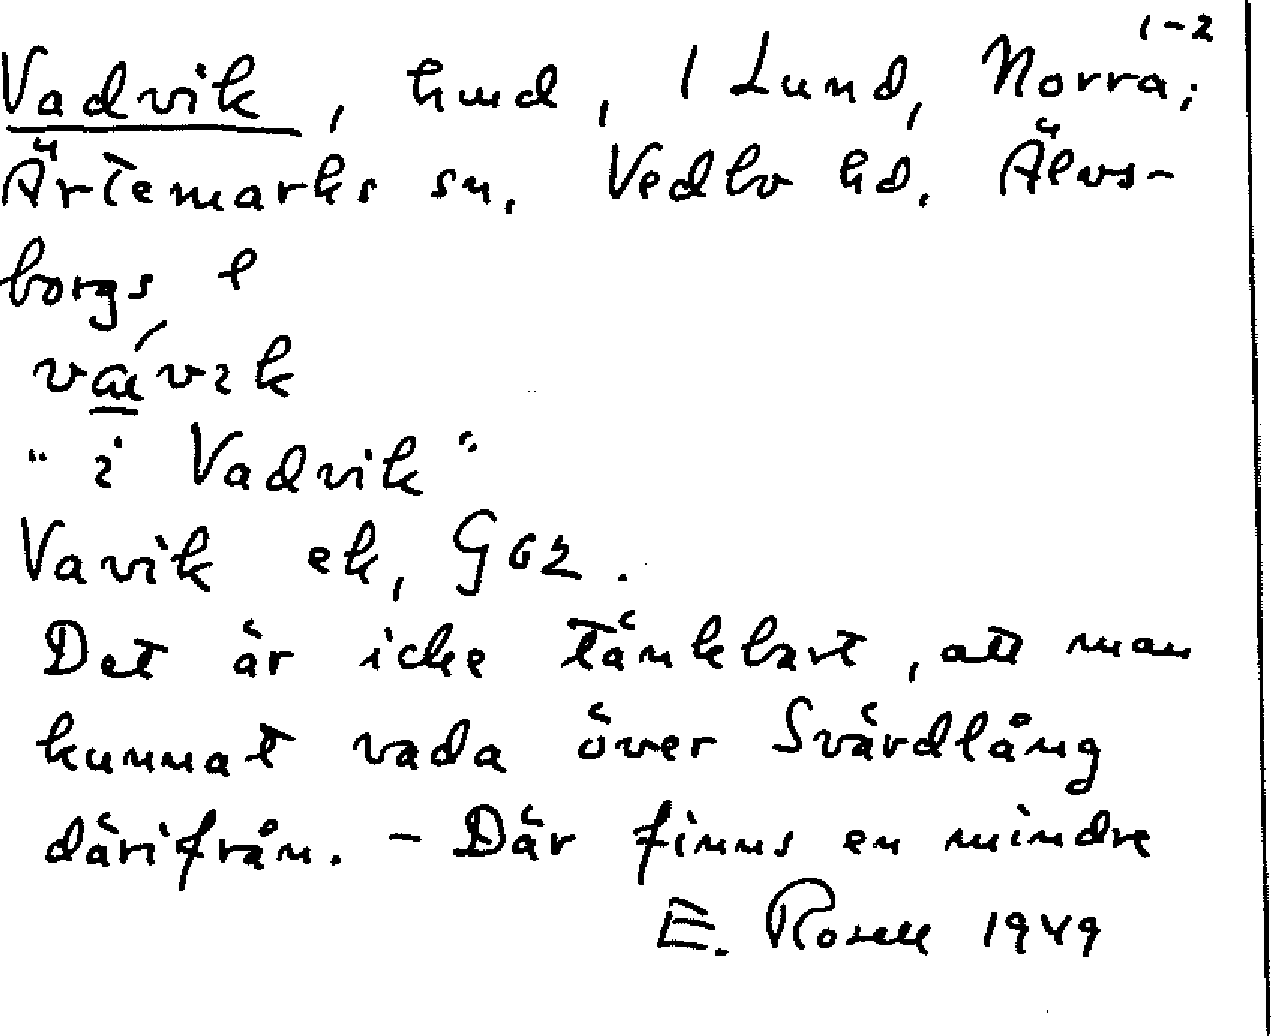 1-2
Vadvik, hmd, 1 Lund, Norra;
Ärtemarks sn, Vedbo hd. Älvs-
borgs l
"i Vadvik"
Vavik ek, G62.
Det är icke tänkbart, att man
kunnat vada över Svärdlång
därifrån. - Där finns en mindre
E. Rosell 1949